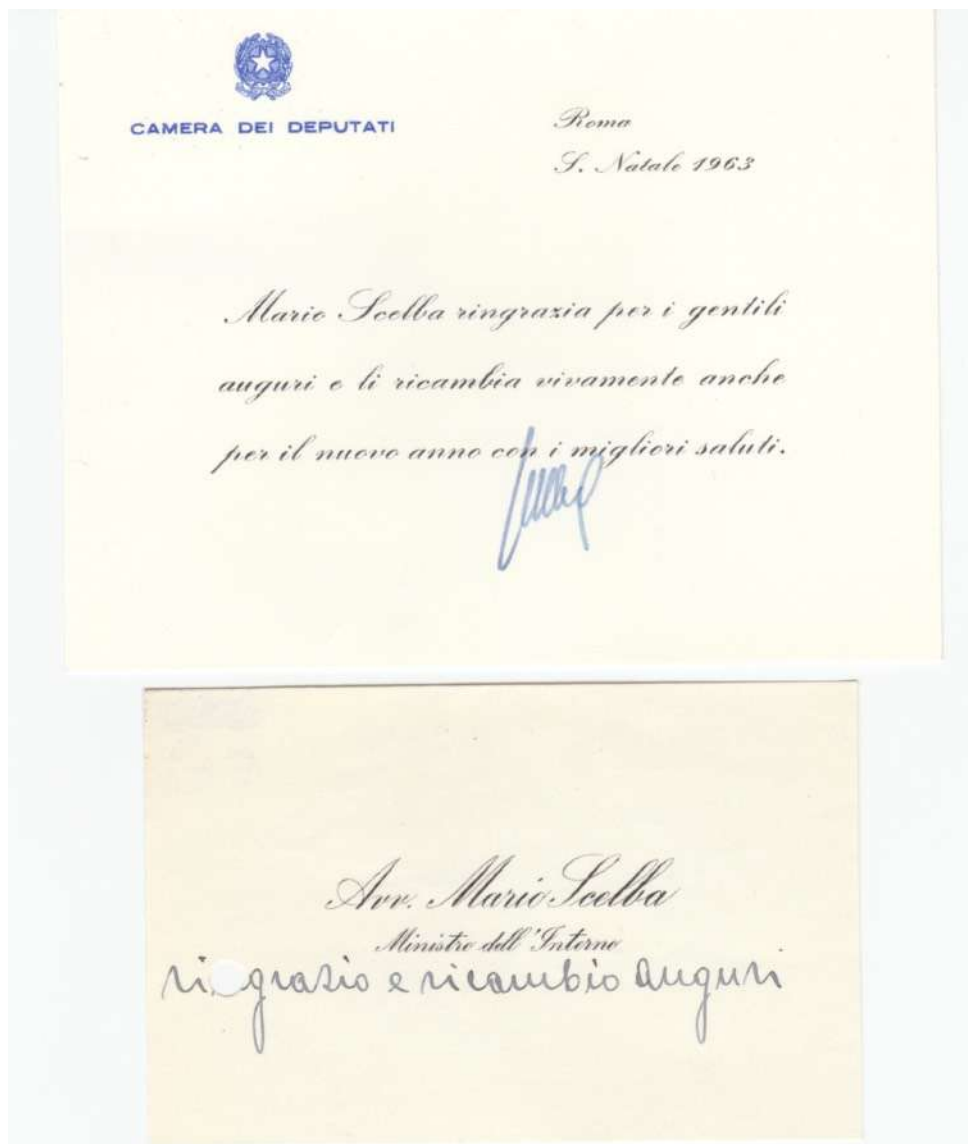 CAMERA DEI DEPUTATI
Roma
S. Natale 1963
Mario Scelba ringrazia per i gentili
auguri e li ricambia vivamente anche
per il nuovo anno con i migliori saluti.
Avv. Mario Scelba
Ministro dell'Interno
ri grazio e ricambio auguri